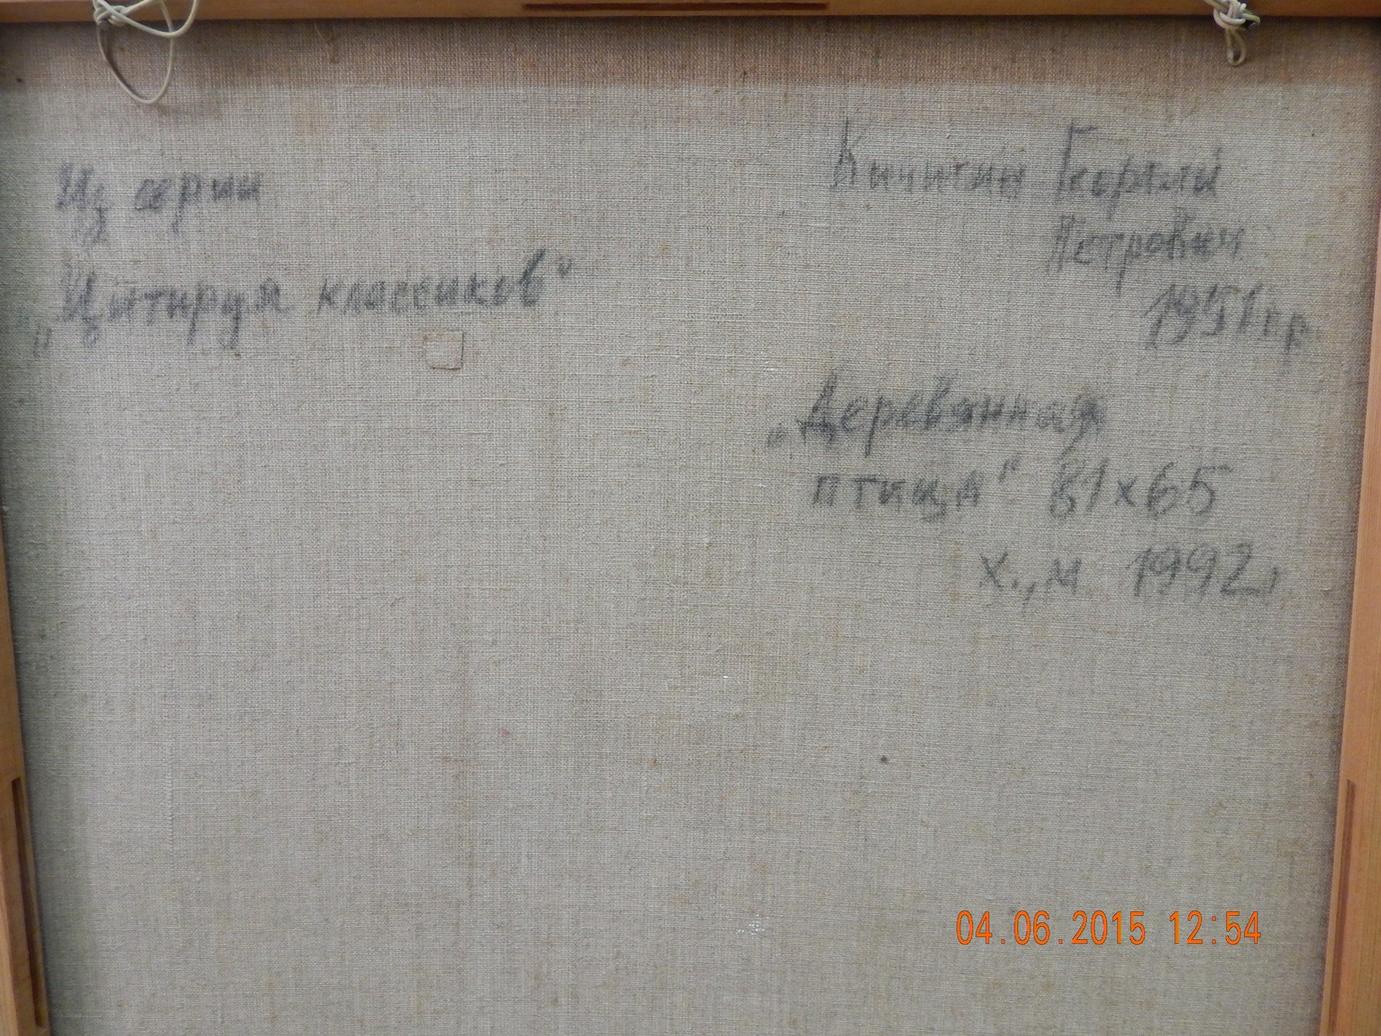 Из серии
„Цитируя классиков"
Кичигин Георгий
Петрович
1951г.р.
„Деревянная
птица" 81х65
х.,м 1992г
04.06.2015 12:54